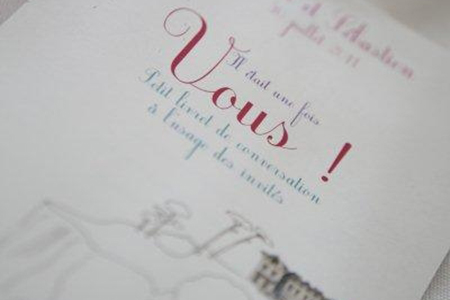 et Sébastien
juillet 2011
Il était une fois
Vous !
Petit livret de conversation
à l'usage des invités